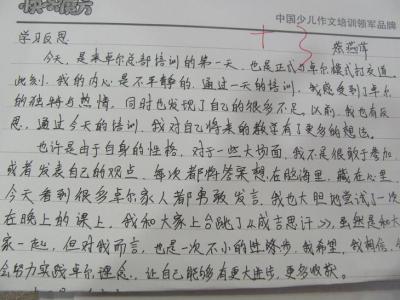 快乐魔方
中国少儿作文培训领军品牌
学习反思
蔡燕萍
今天,是来卓尔总部培训的第一天,也是正式与卓尔模式打交道。
此刻,我的内心是不平静的,通过一天的培训,我感受到了卓尔
的独特与热情,同时也发现了自己的很多不足。以前,我也有反
思,通过今天的培训,我对自己将来的教学有了更多的想法。
也许是由于自身的性格,对于一些大场面,我不是很敢于参加,
或者发表自己的观点,每次都将答案想在脑海里,藏在心里。
今天看到很多卓尔家人都勇敢发言,我也大胆地尝试了一次
在晚上的课上,我和大家上台跳了《成言思汗》,虽然是和大
家一起,但对我而言,也是一次不小的进步,我希望,我相信,今
会努力实践卓尔理念,让自己能够有更大进步,更多收获。